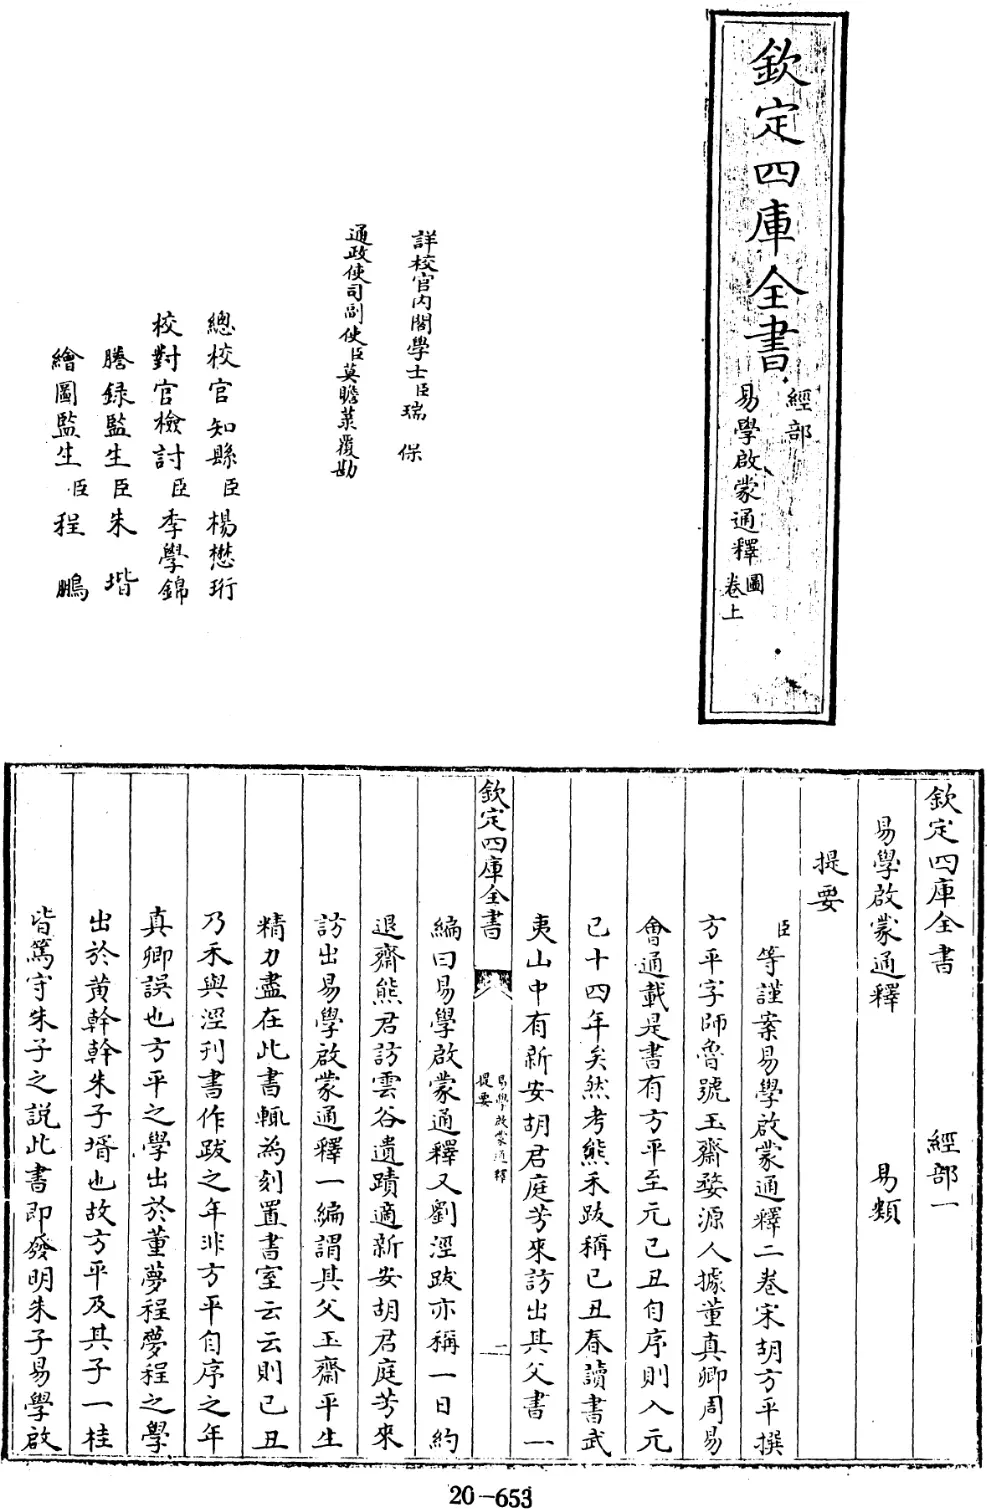 欽定四庫全書
經部
易學啟蒙通釋
圖
卷上
詳校官內閣學士臣瑞保
通政使司副使臣莫瞻菉覆勘
總校官知縣臣楊懋珩
校對官檢討臣李學錦
謄錄監生臣朱堦
繪圖監生臣程鵬
欽定四庫全書 經部一
易學啟蒙通釋 易類
提要
臣等謹案易學啟蒙通釋二卷宋胡方平撰
方平字師魯號玉齋婺源人據董真卿周易
會通載是書有方平至元己丑自序則入元
已十四年矣然考熊禾跋稱己丑春讀書武
夷山中有新安胡君庭芳來訪出其父書一
欽定四庫全書
易學啟蒙通釋
提要
二
編曰易學啟蒙通釋又劉涇跋亦稱一日約
退齋熊君訪雲谷遺蹟適新安胡君庭芳來
訪出易學啟蒙通釋一編謂其父玉齋平生
精力盡在此書輒為刻置書室云云則己丑
乃禾與涇刊書作跋之年非方平自序之年
真卿誤也方平之學出於董夢程夢程之學
出於黃榦榦朱子壻也故方平及其子一桂
皆篤守朱子之說此書即發明朱子易學啟
20-653